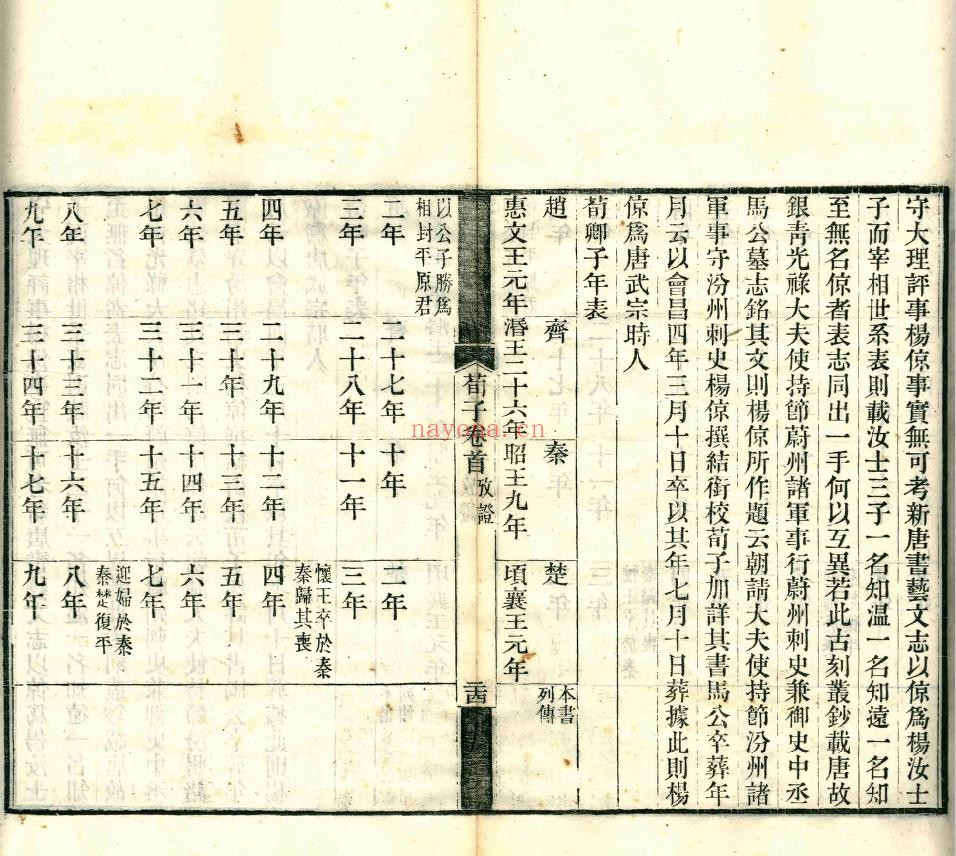 守大理評事楊倞事實無可考新唐書藝文志以倞爲楊汝士
子而宰相世系表則載汝士三子一名知溫一名知遠一名知
至無名倞者表志同出一手何以互異若此古刻叢鈔載唐故
銀青光祿大夫使持節蔚州諸軍事行蔚州刺史兼御史中丞
馬公墓志銘其文則楊倞所作題云朝請大夫使持節汾州諸
軍事守汾州刺史楊倞撰結銜校荀子加詳其書馬公卒葬年
月云以會昌四年三月十日卒以其年七月十日葬據此則楊
倞爲唐武宗時人
荀卿子年表
趙 齊 秦 楚 本書
列傳
惠文王元年 湣王二十六年 昭王九年 頃襄王元年
荀子卷首 攷證 二十四
以公子勝爲
相封平原君
二年 二十七年 十年 二年
三年 二十八年 十一年 三年
懷王卒於秦
秦歸其喪
四年 二十九年 十二年 四年
五年 三十年 十三年 五年
六年 三十一年 十四年 六年
七年 三十二年 十五年 七年
迎婦於秦
秦楚復平
八年 三十三年 十六年 八年
九年 三十四年 十七年 九年
nayona.cn